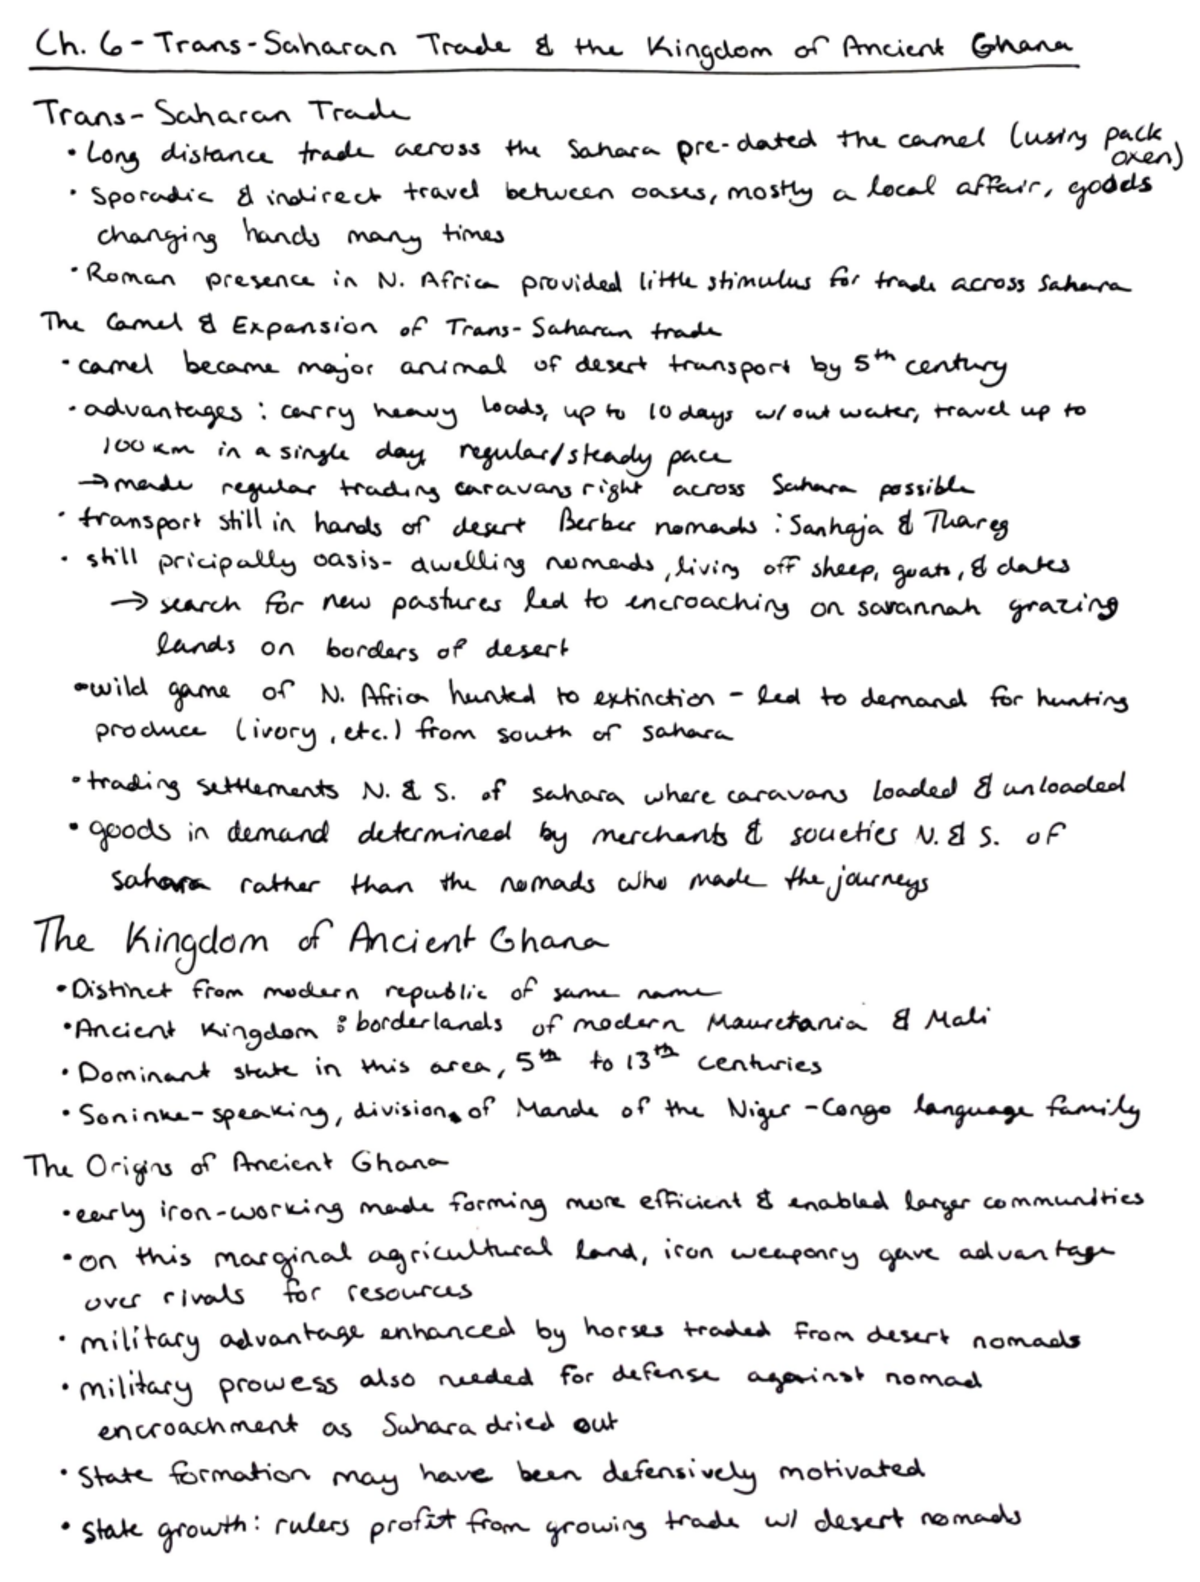 Ch. 6 - Trans-Saharan Trade & the Kingdom of Ancient Ghana
Trans-Saharan Trade
• Long distance trade across the Sahara pre-dated the camel (using pack oxen)
• Sporadic & indirect travel between oases, mostly a local affair, goods
changing hands many times
• Roman presence in N. Africa provided little stimulus for trade across Sahara
The Camel & Expansion of Trans-Saharan trade
• camel became major animal of desert transport by 5th century
• advantages: carry heavy loads, up to 10 days w/out water, travel up to
100 km in a single day, regular/steady pace
→ made regular trading caravans right across Sahara possible
• transport still in hands of desert Berber nomads: Sanhaja & Thareg
• still pricipally oasis-dwelling nomads, living off sheep, goats, & dates
→ search for new pastures led to encroaching on savannah grazing
lands on borders of desert
• wild game of N. Africa hunted to extinction - led to demand for hunting
produce (ivory, etc.) from south of sahara
• trading settlements N. & S. of sahara where caravans loaded & unloaded
• goods in demand determined by merchants & societies N. & S. of
sahara rather than the nomads who made the journeys
The Kingdom of Ancient Ghana
• Distinct from modern republic of same name
• Ancient Kingdom: borderlands of modern Mauretania & Mali
• Dominant state in this area, 5th to 13th centuries
• Soninke-speaking, division of Mande of the Niger-Congo language family
The Origins of Ancient Ghana
• early iron-working made farming more efficient & enabled larger communities
• on this marginal agricultural land, iron weaponry gave advantage
over rivals for resources
• military advantage enhanced by horses traded from desert nomads
• military prowess also needed for defense against nomad
encroachment as Sahara dried out
• State formation may have been defensively motivated
• State growth: rulers profit from growing trade w/ desert nomads